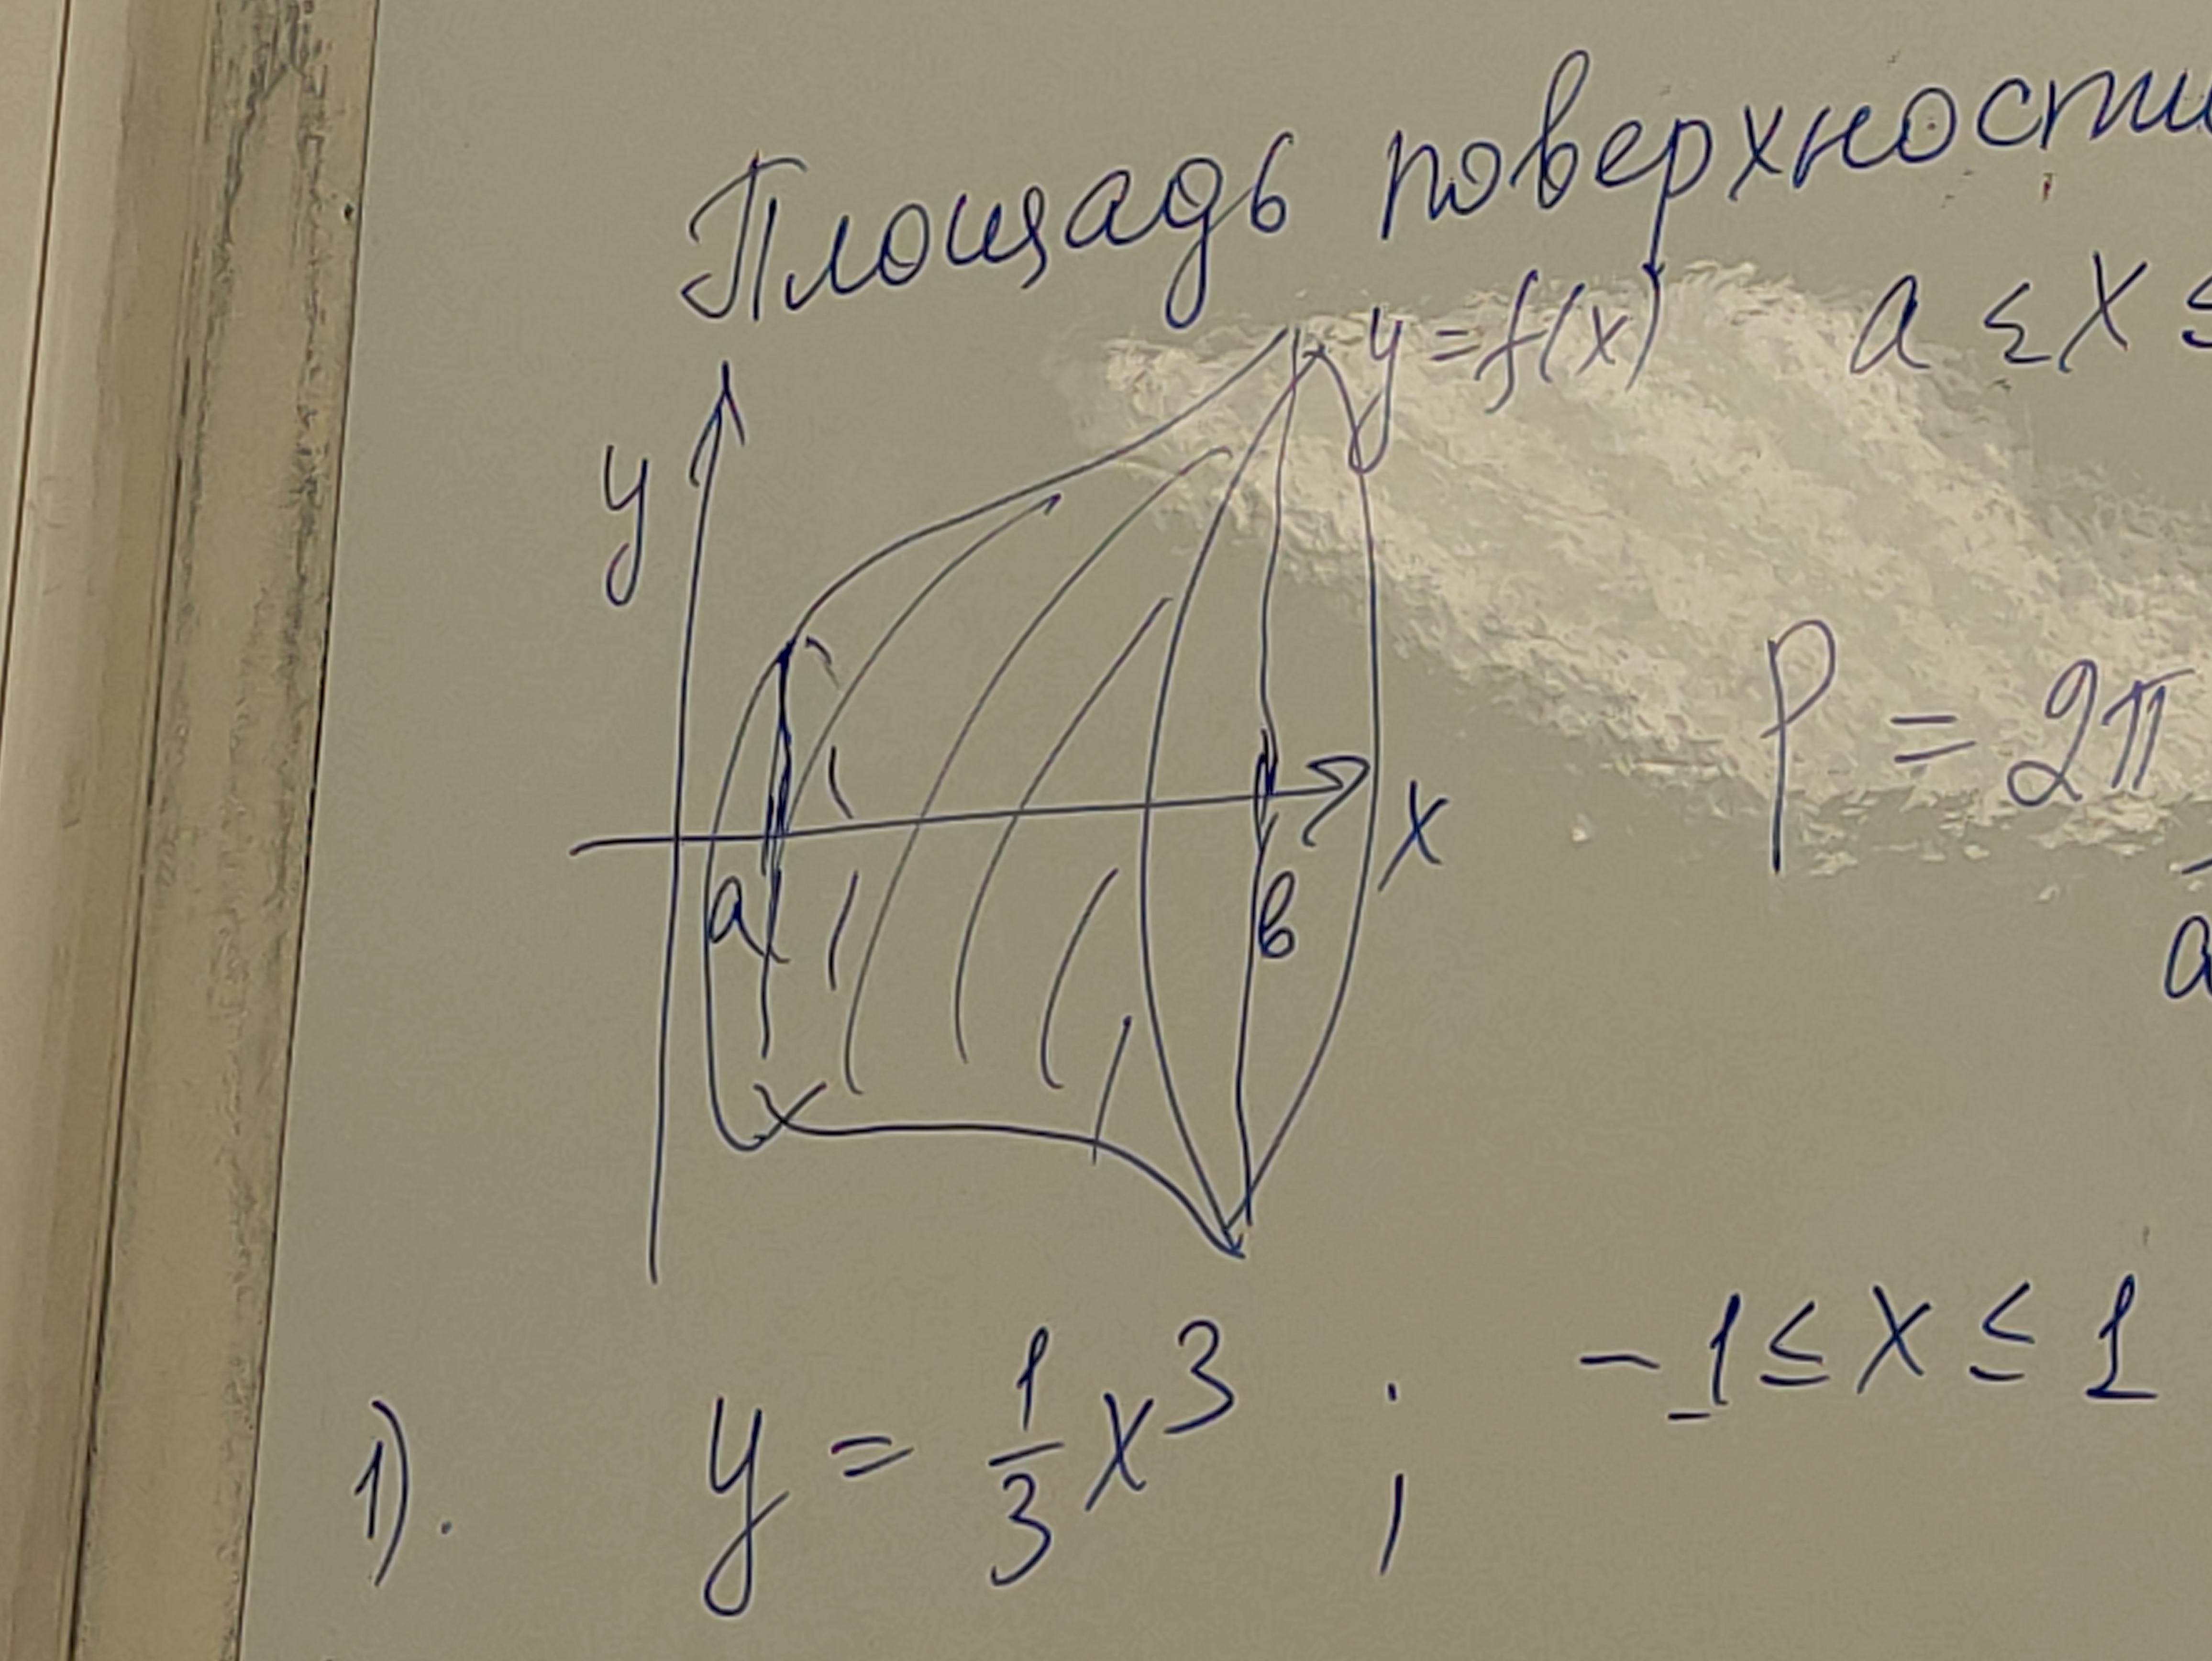 Площадь поверхности
y = f(x) a ≤ x ≤
y
x
a
b
P = 2π
a
1). y = 1/3 x³ ; -1 ≤ x ≤ 1